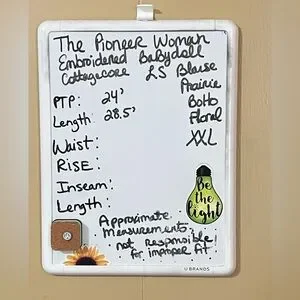 The Pioneer Woman
Embroidered Babydoll
Cottagecore LS Blouse
Prairie
Boho
Floral
XXL
PTP: 24'
Length: 28.5'
Waist:
RISE:
Inseam:
Length:
Be
the
light
Approximate
Measurements
not Responsible
for improper fit.
U BRANDS